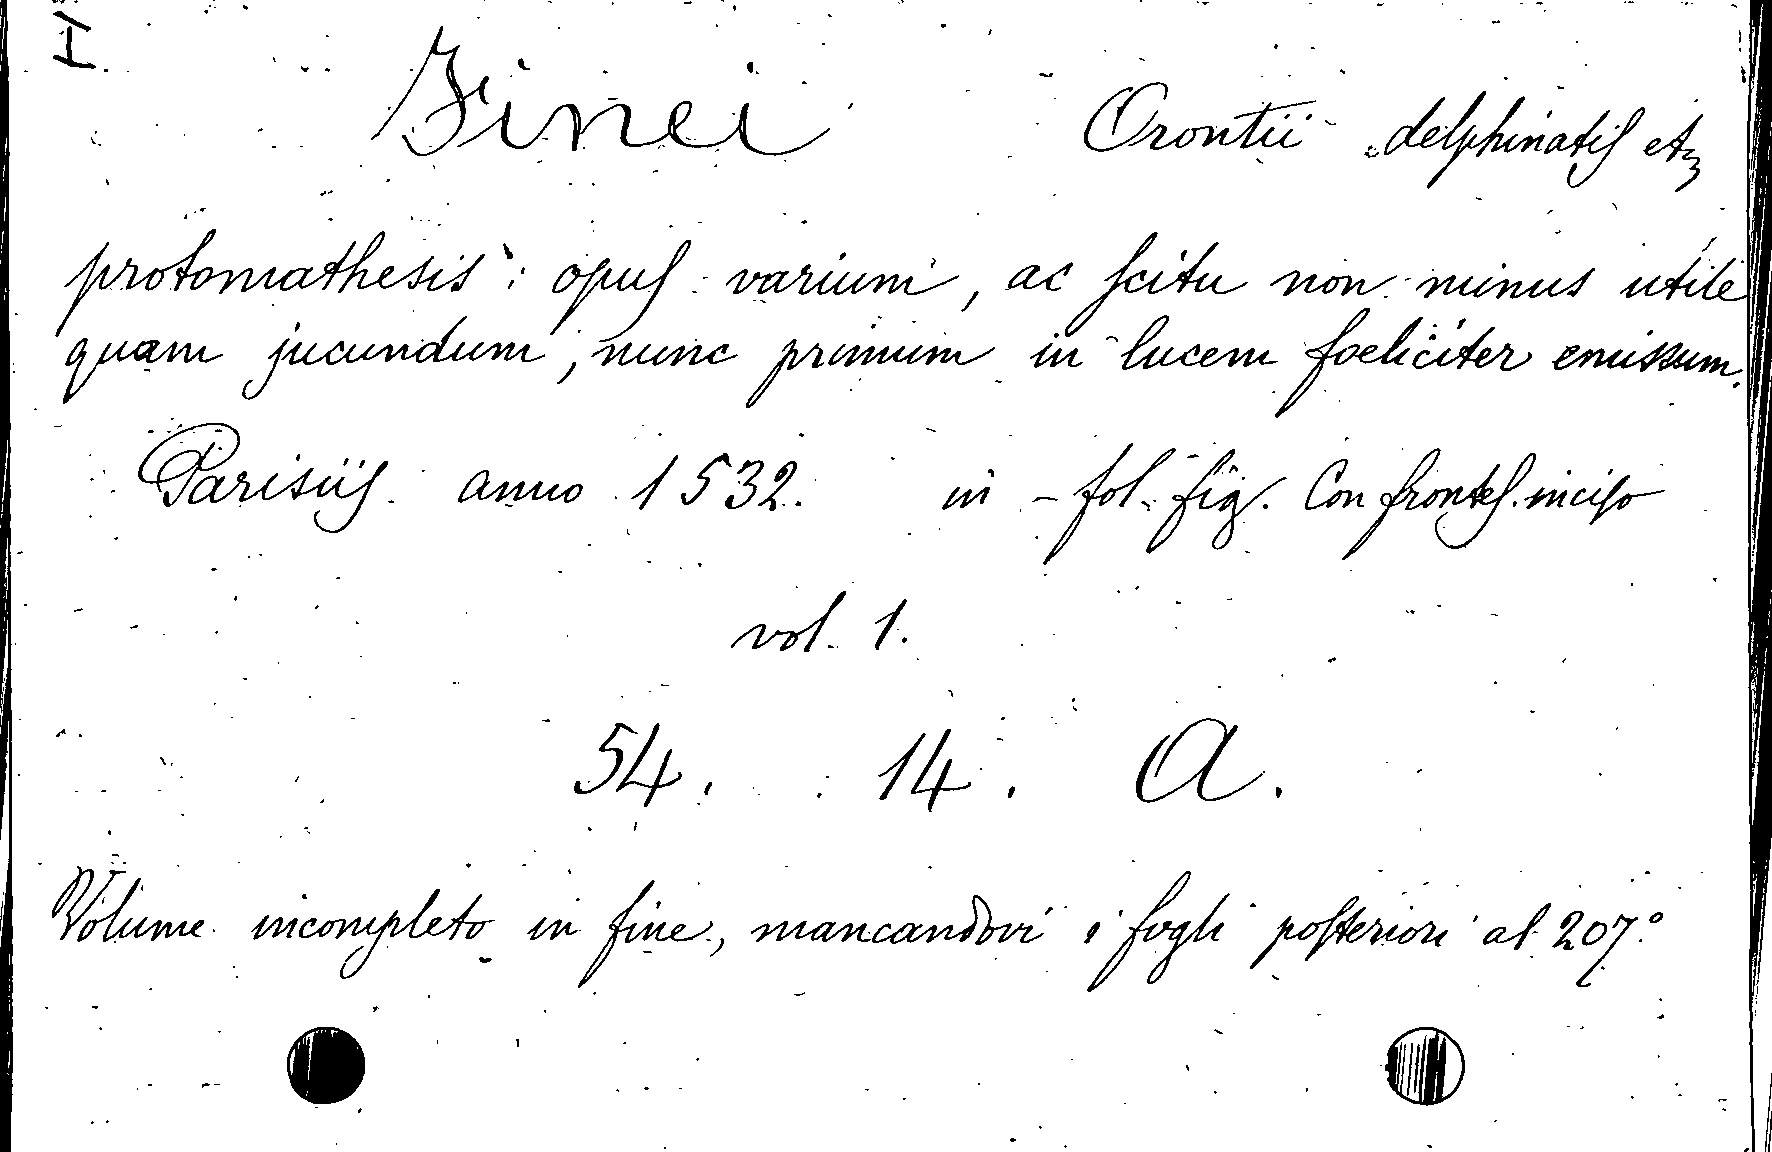 H
Finei Orontii delphinatis etz
protomathesis: opus varium, ac scitu non minus utile
quam jucundum, nunc primum in lucem foeliciter emissum.
Parisiis anno 1532. in-fol. fig. Con frontes. inciso
vol. 1.
54. 14. A.
Volume incompleto in fine, mancandovi i fogli posteriori al 207.°